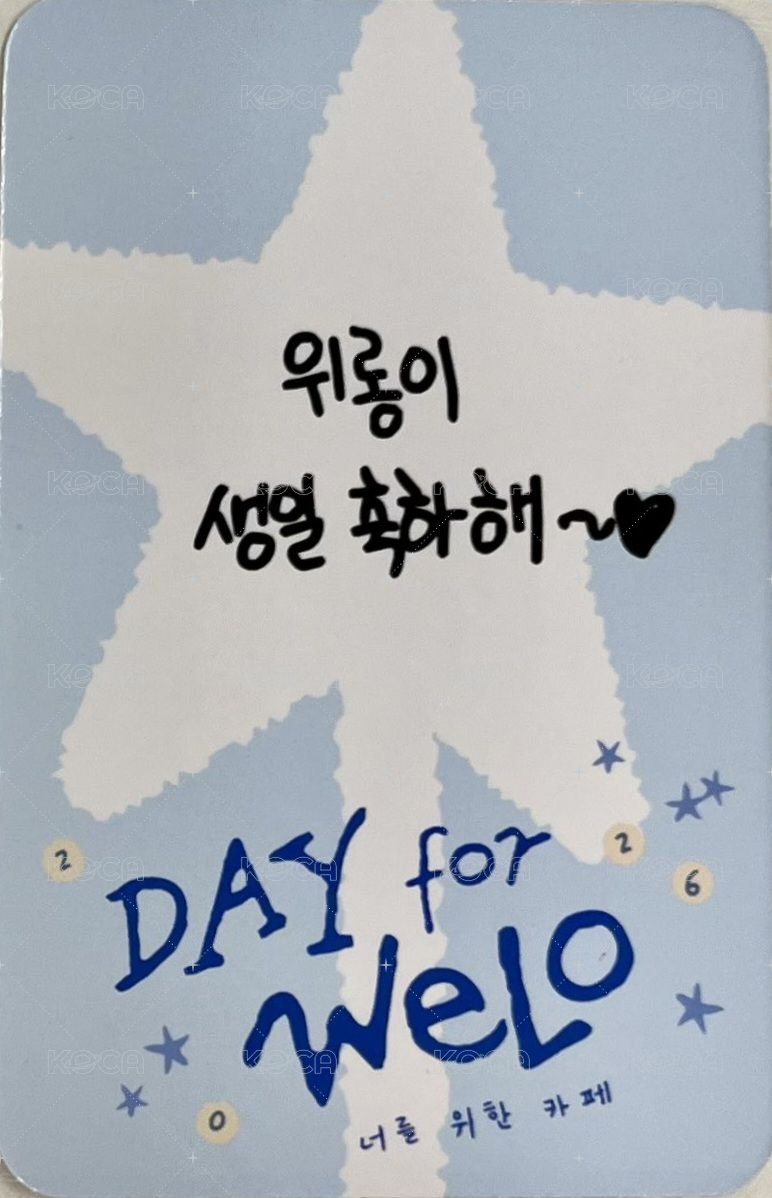 위롱이
생일 축하해~♥
DAY for
WeLO
2
0
2
6
너를 위한 카페
KOCA